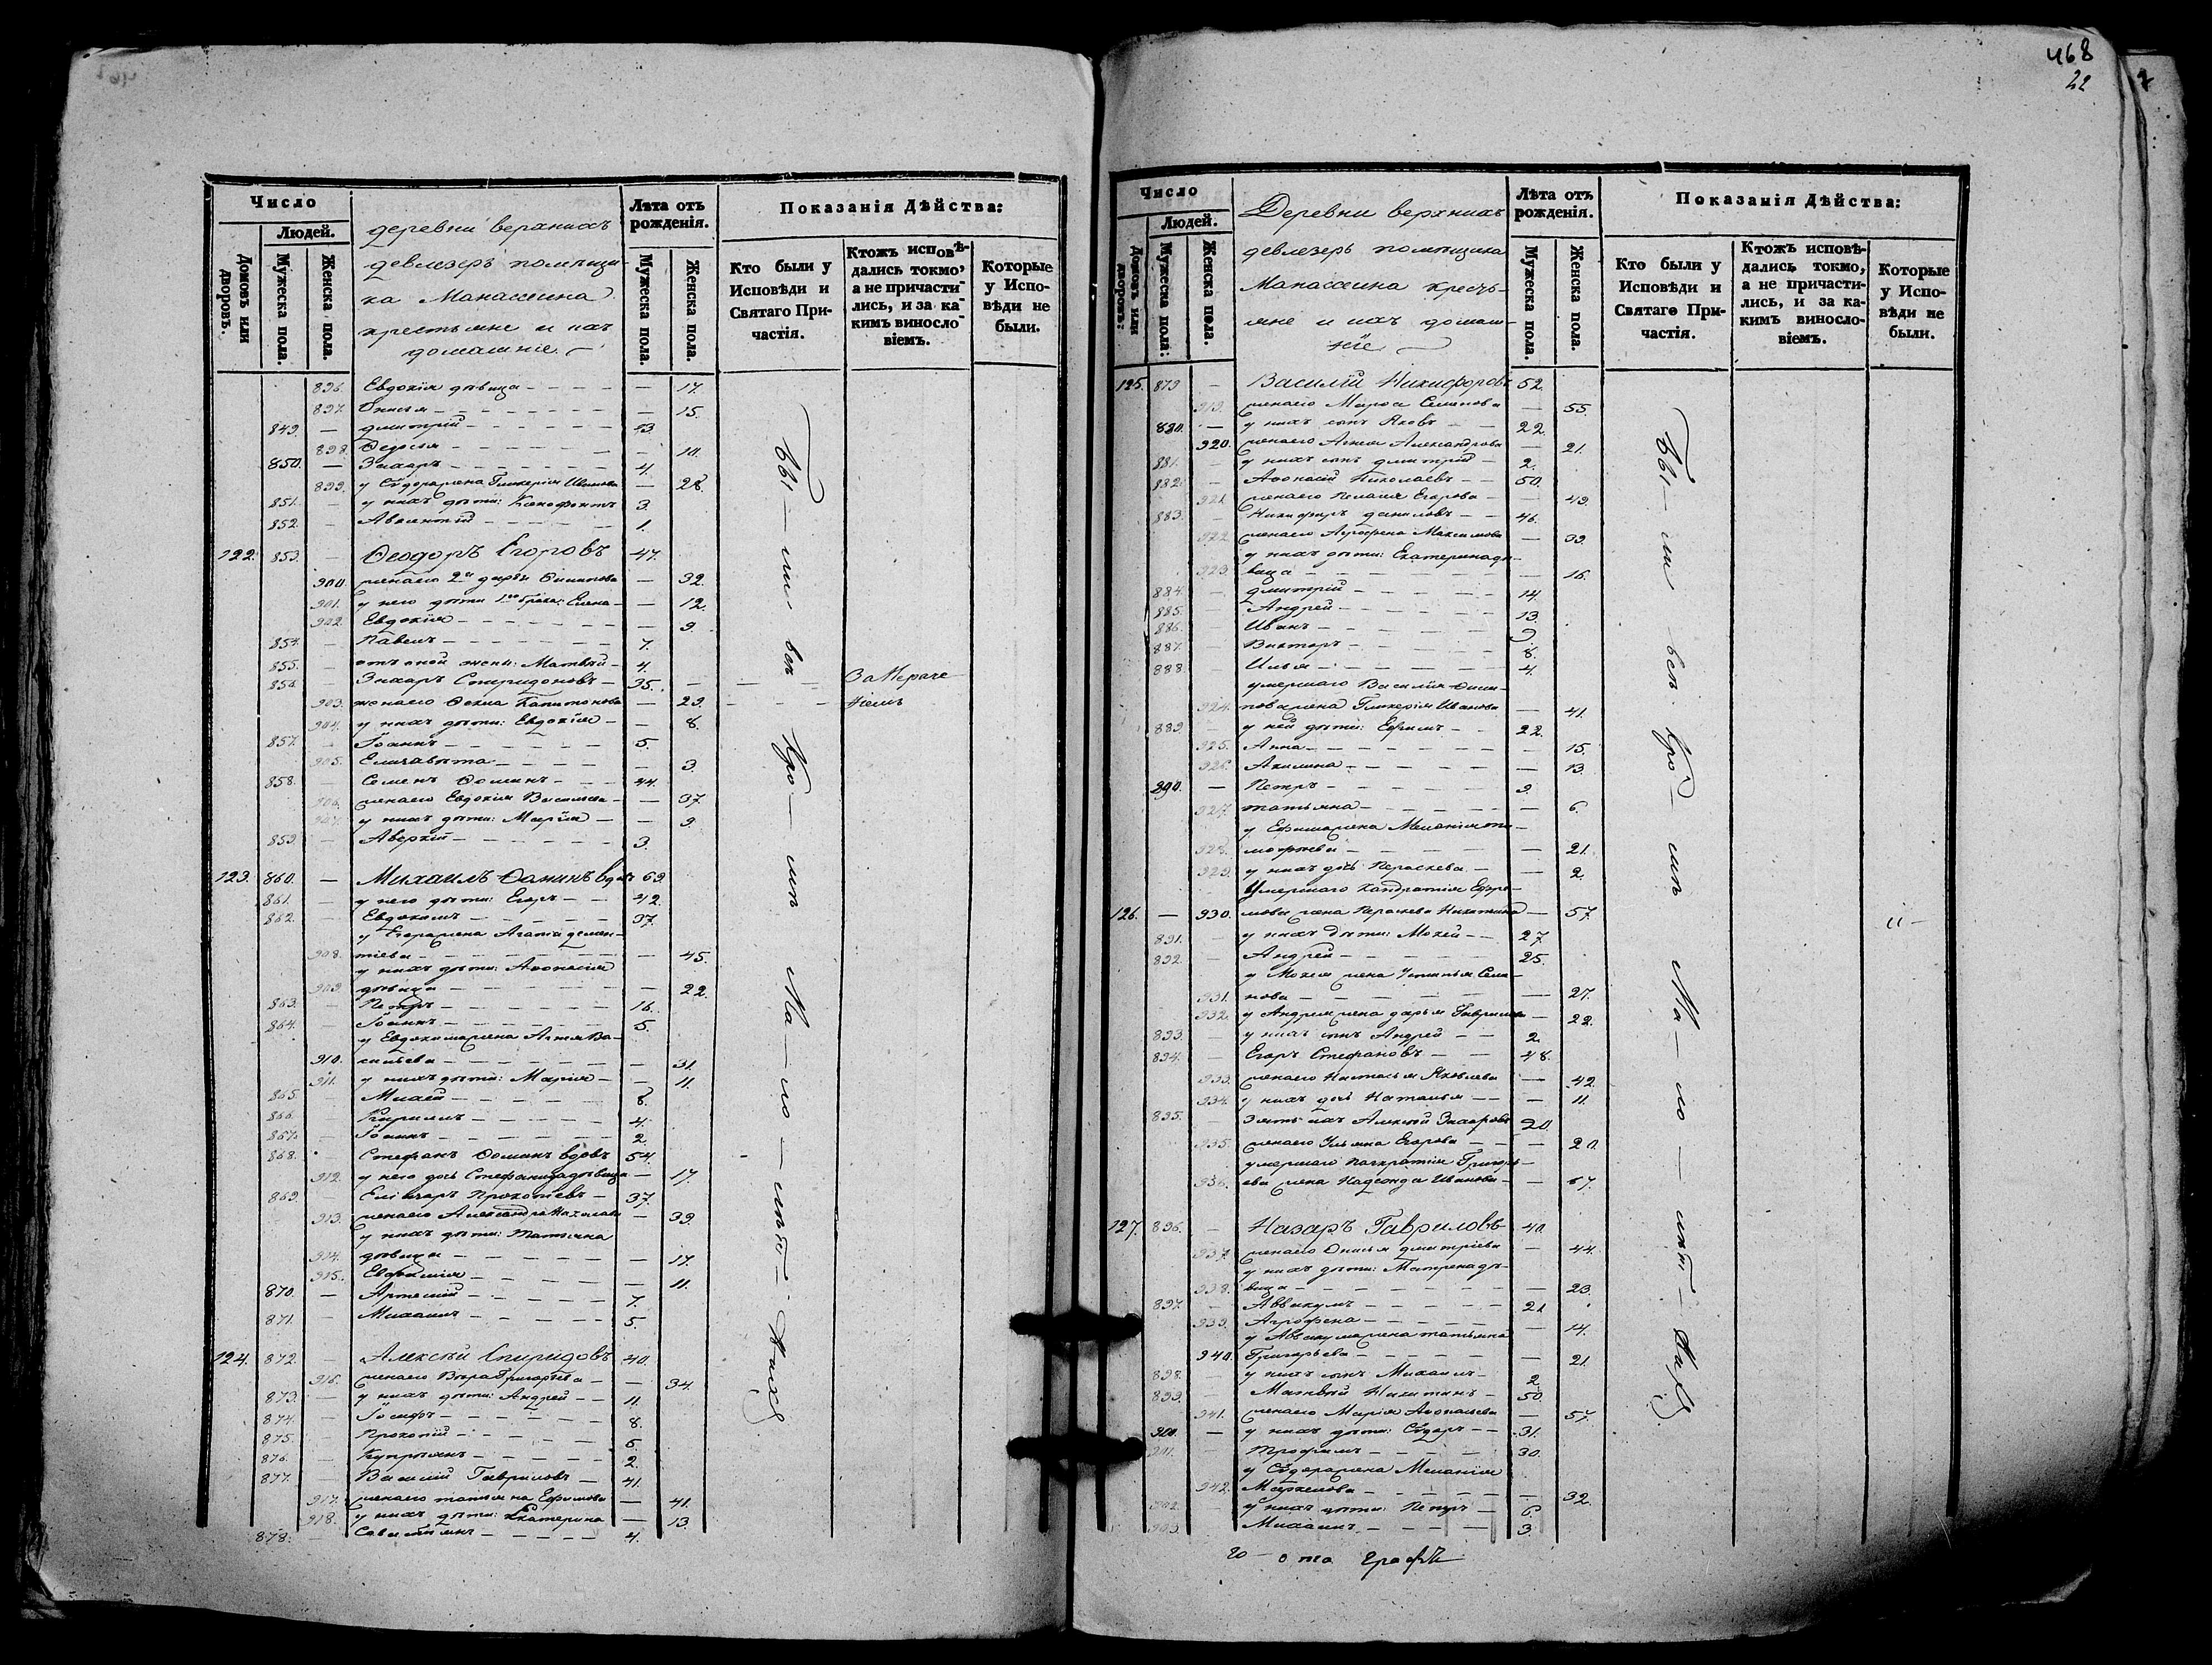 468
22
Число
Людей.
Домовъ или дворовъ.
Мужеска пола.
Женска пола.
деревни верхнихъ
девлезеръ помѣщи-
ка Манассеина
крестьяне и ихъ
домашніе
Лѣта отъ рожденія.
Мужеска пола.
Женска пола.
Показанія Дѣйства:
Кто были у Исповѣди и Святаго При-частія.
Ктожъ исповѣ-дались токмо, а не причасти-лись, и за ка-кимъ винословіемъ.
Которые у Испо-вѣди не были.
896. Евдокія дѣвица — 17.
897. Анисья — 15.
849. — Дмитрій — 13.
898. Ѳедосья — 10.
850. — Захаръ — 4.
899. у Сѵдора жена Гликерія Иванова — 28.
851. — у нихъ дѣти: Ксенофонтъ 3.
852. — Авксентій — 1.
122. 853. — Ѳеодоръ Егоровъ 47.
900. жена его 2я Дарья — 32.
901. у него дѣти 1го брака: Елена — 12.
902. Евдокія — 9.
854. — Павелъ — 7.
855. — отъ оной жены: Матвѣй — 4.
856. Захаръ Спиридоновъ — 35. — За Мераче-
903. жена его Ѳекла Капитонова — 29. — ніемъ
904. у нихъ дѣти: Евдокія — 8.
857. — Іоаннъ — 5.
905. Елисавета — 3.
858. — Семенъ Ѳоминъ — 44.
906. жена его Евдокія Васильева — 37.
907. у нихъ дѣти: Марія — 9.
859. — Аверкій — 3.
123. 860. — Михаилъ Ѳоминъ вдовъ 69.
861. — у него дѣти: Егоръ — 42.
862. — Евдокимъ — 37.
у Егора жена Агафія Демен-
908. тіева — 45.
у нихъ дѣти: Аѳонасія
909. дѣвица — 22.
863. — Петръ — 16.
864. — Іоаннъ — 5.
у Евдокима жена Агнія Ва-
910. сильева — 31.
911. у нихъ дѣти: Марія — 11.
865. — Михей — 8.
866. — Кириллъ — 4.
867. — Іоаннъ — 2.
868. Стефанъ Ѳоминъ вдовъ 54.
912. у него дочь Стефанида дѣвица — 17.
869. Елеазаръ Прокопіевъ — 37.
913. жена его Александра Николаева — 39.
у нихъ дѣти: Татіяна
914. дѣвица — 17.
915. Евфимія — 11.
870. — Артемій — 7.
871. — Михаилъ — 5.
124. 872. — Алексѣй Спиридовъ 40.
916. жена его Вѣра Григорьева — 34.
873. — у нихъ дѣти: Андрей — 11.
874. — Іосифъ — 8.
875. — Прокопій — 6.
876. — Купріянъ — 2.
877. — Василій Гавриловъ — 41.
917. жена его Татьяна Ефимова — 41.
918. у нихъ дѣти: Екатерина — 13.
878. — Савастьянъ — 4.
Бы — ли всѣ кро — мѣ Ма — ло — лѣт — нихъ
Число
Людей.
Домовъ или дворовъ:
Мужеска пола:
Женска пола.
Деревни верхнихъ
девлезеръ помѣщика
Манассеина кресть-
яне и ихъ домаш-
ніе
Лѣта отъ рожденія.
Мужеска пола.
Женска пола.
Показанія Дѣйства:
Кто были у Исповѣди и Святаго При-частія.
Ктожъ исповѣ-дались токмо, а не причасти-лись, и за ка-кимъ винословіемъ.
Которые у Испо-вѣди не были.
125. 879 — Василій Никифоровъ 52.
919. жена его Марѳа Семенова — 55.
880. — у нихъ сынъ Яковъ — 22.
920. жена его Агнія Александрова — 21.
881. — у нихъ сынъ Дмитрій — 2.
882. — Аѳонасій Николаевъ — 50.
921. жена его Пелагія Егорова — 49.
883. — Никифоръ Даниловъ — 46.
922. жена его Агрофена Максимова — 39.
у нихъ дѣти: Екатерина дѣ-
923. вица — 16.
884. — Дмитрій — 14.
885. — Андрей — 13.
886. — Иванъ — 9.
887. — Викторъ — 8.
888. Илья — 4.
умершаго Василія
924. жена Гликерія Иванова — 41.
889. — у ней дѣти: Ефимъ — 22.
925. Анна — 15.
926. Акилина — 13.
890. — Петръ — 9.
927. Татьяна — 6.
у Ефима жена Меланія Ти-
928. мофѣева — 21.
929. у нихъ дочь Параскева — 2.
Умершаго Кандратія Ефре-
126. — 930. мова жена Параскева Никитина — 57. 11 —
891. — у нихъ дѣти: Мокей — 27.
892. — Андрей — 25.
у Мокея жена Устинья Семе-
931. нова — 27.
932. у Андрея жена Дарья Гаврилова — 22.
893. — у нихъ сынъ Андрей — 2.
894. — Егоръ Стефановъ — 48.
933. жена его Настасья Яковлева — 42.
934. у нихъ дочь Наталья — 11.
895. — Зять ихъ Алексѣй Захаровъ 20.
935. жена его Ульяна Егорова — 20.
умершаго Панкратія Григорь-
936. ева жена Надежда Иванова — 67.
127. 896. — Назаръ Гавриловъ 40.
937. жена его Анисья Дмитріева — 44.
у нихъ дѣти: Матрена дѣ-
938. вица — 23.
897. — Аввакумъ — 21.
939. Агрофена — 14.
у Аввакума жена Татьяна
940. Григорьева — 21.
898. — у нихъ сынъ Михаилъ — 2.
899. — Матвѣй Никитинъ — 50.
941. жена его Марія Аѳонасьева — 57.
900. — у нихъ дѣти: Сѵдоръ — 31.
901. — Трофимъ — 30.
у Сѵдора жена Меланія
942. Маркелова — 32.
902. — у нихъ дѣти: Петръ — 6.
903. — Михаилъ — 3.
Бы — ли всѣ кро — мѣ Ма — ло — лѣт — нихъ